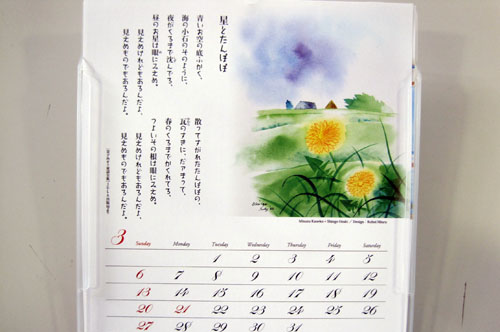 星とたんぽぽ
青いお空の底ふかく、
海の小石のそのように、
夜がくるまで沈んでる、
昼のお星は眼にみえぬ。
見えぬけれどもあるんだよ、
見えぬものでもあるんだよ。
散ってすがれたたんぽぽの、
瓦のすきに、だァまって、
春のくるまでかくれてる、
つよいその根は眼にみえぬ。
見えぬけれどもあるんだよ、
見えぬものでもあるんだよ。
3
Sunday Monday Tuesday Wednesday Thursday Friday Saturday
1 2 3 4 5
6 7 8 9 10 11 12
13 14 15 16 17 18 19
20 21 22 23 24 25 26
27 28 29 30 31